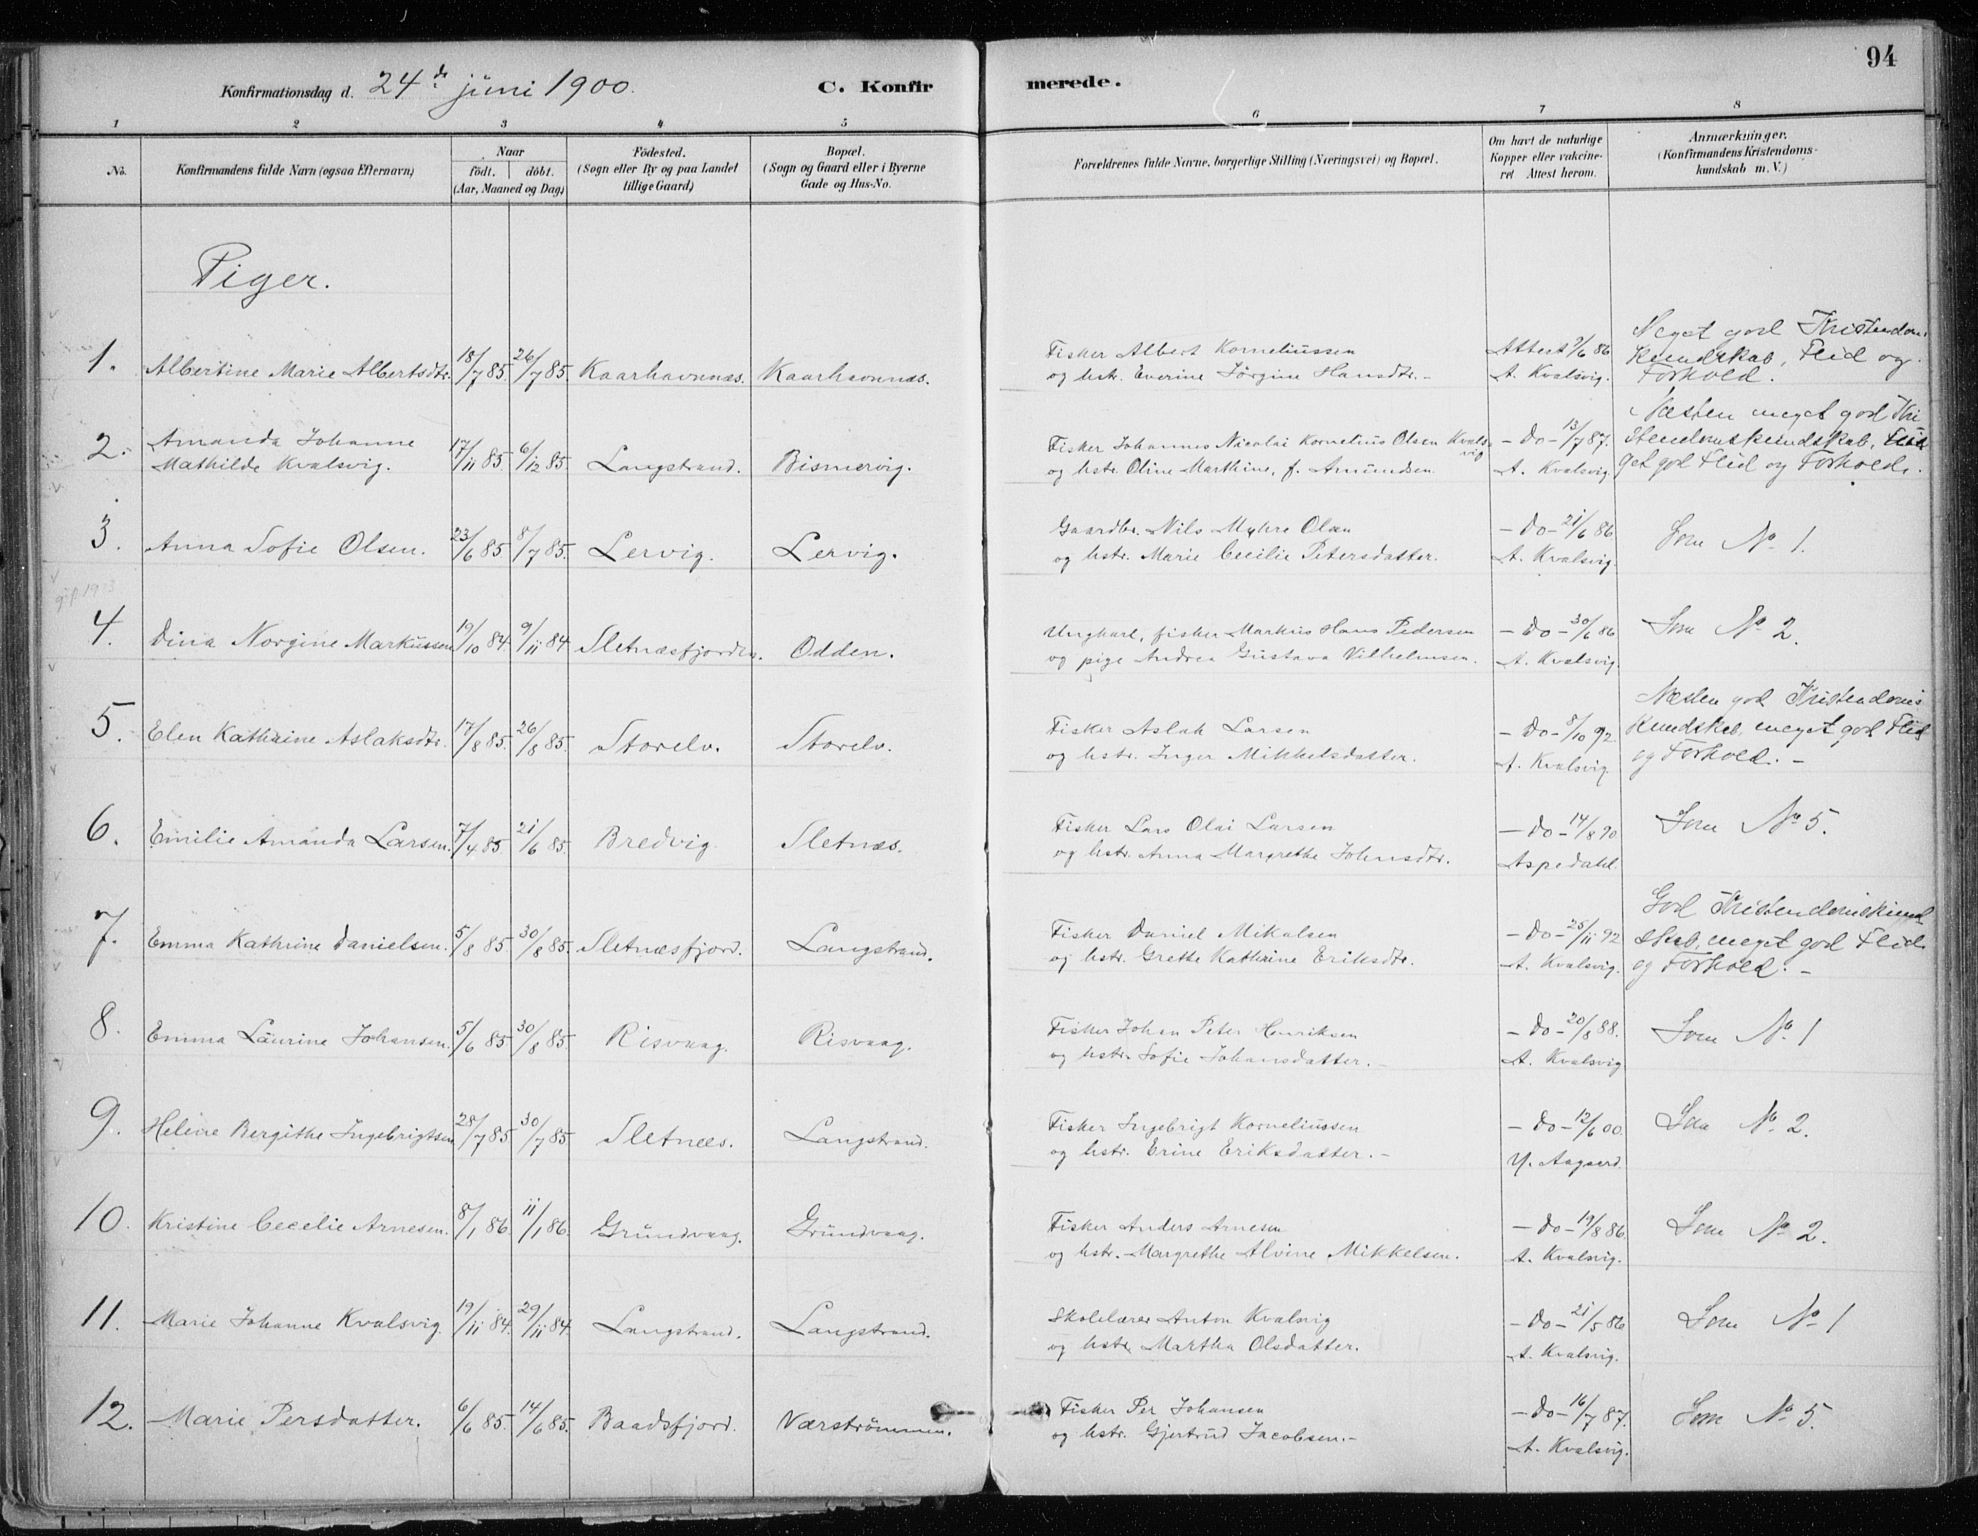 94
Konfirmationsdag d. 24de juni 1900. C. Konfirmerede.
1 2 3 4 5 6 7 8
No. Konfirmandens fulde Navn (ogsaa Efternavn) Naar födt. döbt. (Aar, Maaned og Dag) Födested. (Sogn eller By og paa Landet tillige Gaard) Bopæl. (Sogn og Gaard eller i Byerne Gade og Hus-No. Forældrenes fulde Navne, borgerlige Stilling (Næringsvei) og Bopæl. Om havt de naturlige Kopper eller vakcineret Attest herom. Anmærkninger. (Konfirmandens Kristendomskundskab m. V.)
Piger.
1. Albertine Marie Albertsdtr. 18/7 85. 26/7 85. Kaarhavnnæs. Kaarhavnnæs. Fisker Albert Korneliussen
og hstr. Everine Jörgine Hansdtr.- Attest 9/6 86 A. Kvalsvig. Meget god Kristendoms
Kundskab, Flid og
Forhold.
2. Amanda Johanne
Mathilde Kvalsvig. 17/11 85. 6/12 85. Langstrand. Bismervig. Fisker Johannes Nicolai Kornelius Olsen Kvalsvig
og hstr. Oline Marthine, f. Amundsen - Do - 13/7 87. A. Kvalsvig Næsten meget god Kri
stendomskundskab,
get god Flid og Forhold.
3. Anna Sofie Olsen. 23/6 85 8/7 85. Lervig. Lervig. Gaardbr. Nils Myhre Olsen
og hstr. Marie Cecilie Petersdatter. - Do - 21/6 86 A. Kvalsvig. Som No. 1.
4. Dina Norgine Markussen 19/10 84. 9/11 84. Sletnæsfjorden. Odden. Ungkarl, fisker Markus Hans Pedersen
og pige Andrea Gustava Vilhelmsen. - Do - 30/6 86 A. Kvalsvig. Som No. 2.
5. Elen Kathrine Aslaksdtr. 17/8 85. 26/8 85. Storelv. Storelv. Fisker Aslak Larsen
og hstr. Inger Mikkelsdatter. - Do - 8/10 92. A. Kvalsvig. Næsten god Kristendoms
kundskab, meget god Flid
og Forhold. -
6. Emilie Amanda Larsen. 7/4 85 21/6 85. Bredvig. Sletnæs. Fisker Lars Olai Larsen
og hstr. Anna Margrethe Johnsdtr. - Do - 14/8 90 Aspedahl. Som No. 5.
7. Emma Kathrine Danielsen. 5/8 85. 30/8 85. Sletnæsfjord. Langstrand. Fisker Daniel Mikalsen
og hstr. Grethe Kathrine Eriksdtr. - Do - 25/11 92 A. Kvalsvig. God Kristendomskund
skab, meget god Flid
og Forhold. -
8. Emma Laurine Johansen. 5/6 85 30/8 85. Risvaag. Risvaag. Fisker Johan Peter Henriksen
og hstr. Sofie Johansdatter. - - Do - 20/8 88. A. Kvalsvig Som No. 1
9. Heline Bergithe Ingebrigtsen 28/7 85 30/7 85. Sletnæs. Langstrand. Fisker Ingebrigt Korneliussen
og hstr. Erine Eriksdatter. - - Do - 12/6 00. Y. Aagaard. Som No. 2.
10. Kristine Cecelie Arnesen. 8/1 86. 11/1 86. Grundvaag. Grundvaag. Fisker Anders Arnesen
og hstr. Margrethe Alvine Mikkelsen. - Do - 19/8 86. A. Kvalsvig. Som No. 2.
11. Marie Johanne Kvalsvig. 19/11 84. 29/11 84. Langstrand. Langstrand. Skolelærer Anton Kvalsvig
og hstr. Martha Olsdatter. - Do - 21/5 86 A. Kvalsvig. Som No. 1
12. Marie Persdatter. 6/6 85. 14/6 85. Baadsfjord. Værströmmen. Fisker Per Johansen
og hstr. Gjertrud Jacobsen. - - Do - 16/7 87. A. Kvalsvig. Som No. 5.